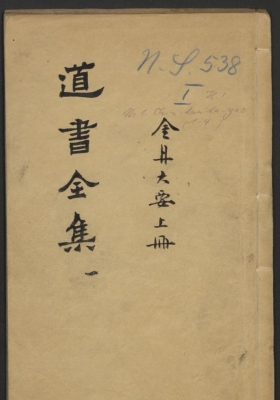 道書全集
一
金丹大要上冊
N.S. 538
I